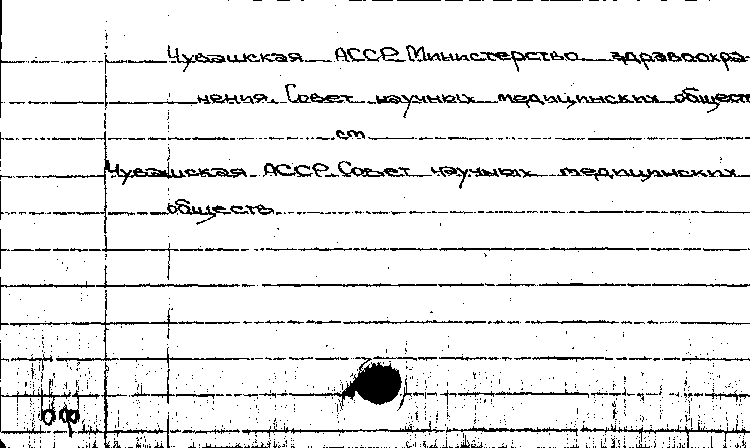 Чувашская АССР. Министерство здравоохра-
нения. Совет научных медицинских обществ
см
Чувашская АССР. Совет научных медицинских
обществ.
оф